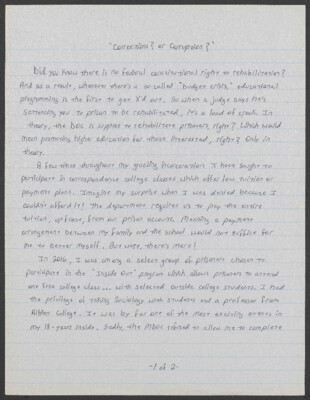 "Corrections? or Corruption?"
Did you know there is no federal constitutional right to rehabilitation?
And as a result, whenever there's a so-called "budget crisis," educational
programming is the first to get X'd out. So when a judge says he's
sentencing you to prison to be rehabilitated, it's a load of crock. In
theory, the DOC is suppose to rehabilitate prisoners, right? Which would
mean promoting higher education for those incarcerated, right? Only in
theory.
A few times throughout my grueling incarceration I have sought to
participate in correspondence college classes which offer low tuition or
payment plans. Imagine my surprise when I was denied because I
couldn't afford it! The department requires us to pay the entire
tuition, upfront, from our prison account. Meaning a payment
arrangement between my family and the school would not suffice for
me to better myself. But wait, there's more!
In 2016, I was among a select group of prisoners chosen to
participate in the "Inside Out" program which allows prisoners to attend
one free college class... with selected outside college students. I had
the privilege of taking Sociology with students and a professor from
Albion College. It was by far one of the most exciting events in
my 18-years inside. Sadly, the MDOC refused to allow me to complete
-1 of 2-